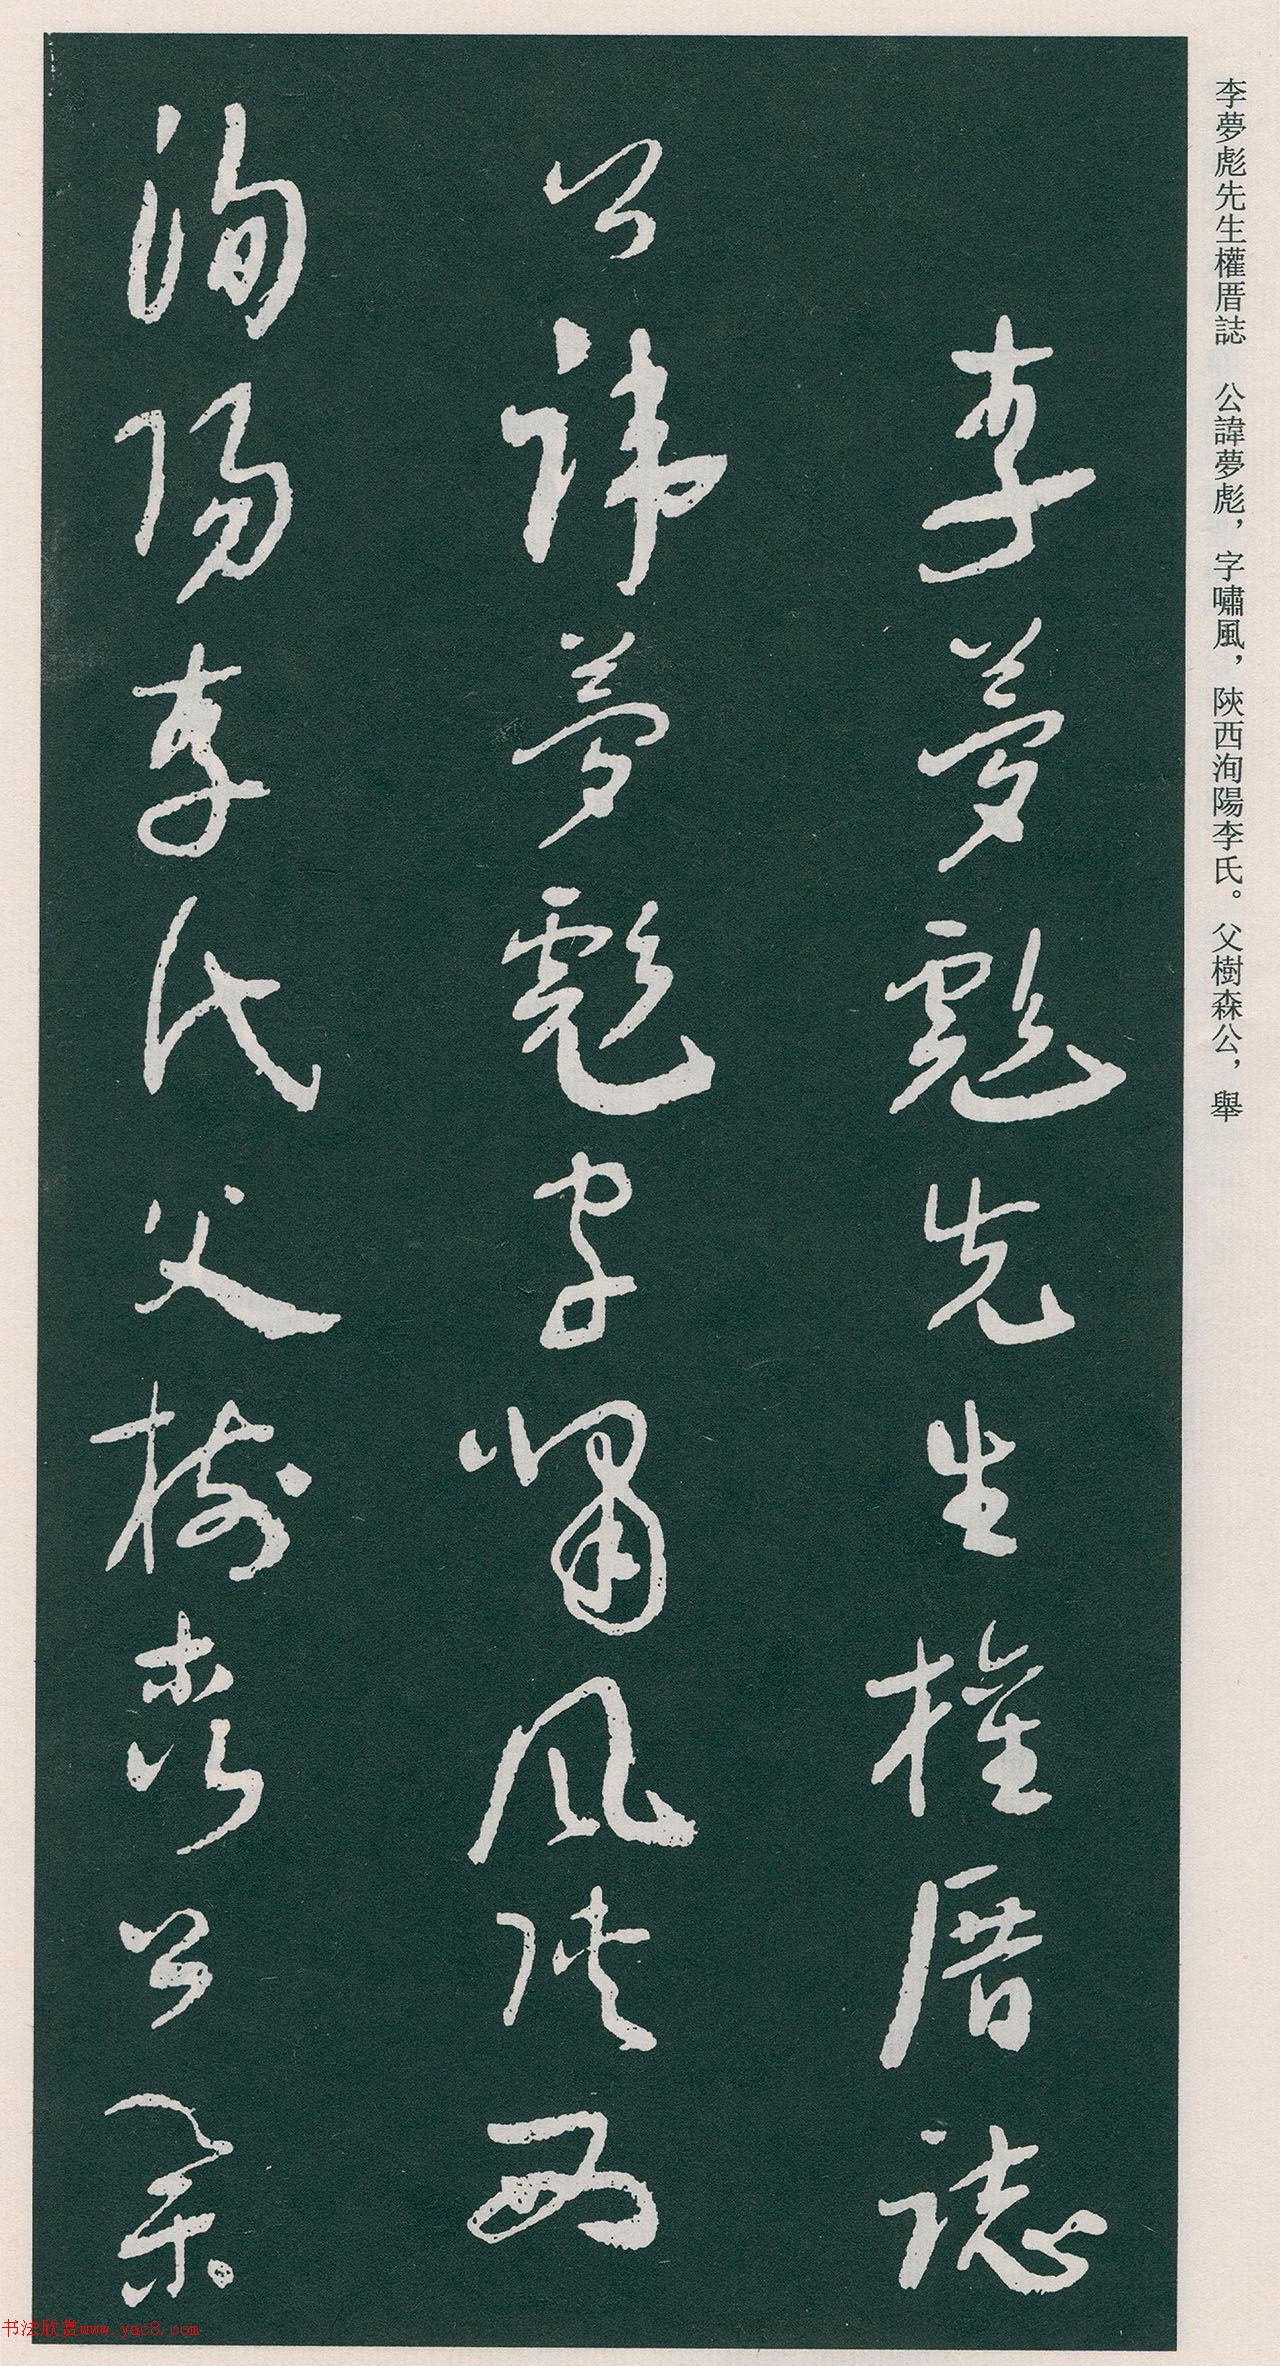 李夢彪先生權厝誌　公諱夢彪，字嘯風，陝西洵陽李氏。父樹森公，舉
李夢彪先生權厝誌
公諱夢彪字嘯風陝西
洵陽李氏父樹森公舉
书法欣赏www.yac8.com